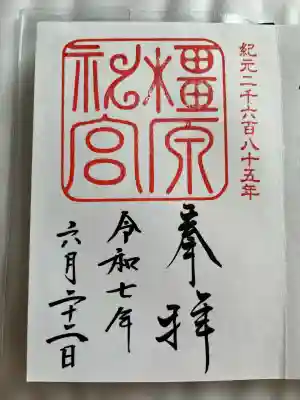 紀元二千六百八十五年
橿原
神宮
奉拝
令和七年
六月二十二日